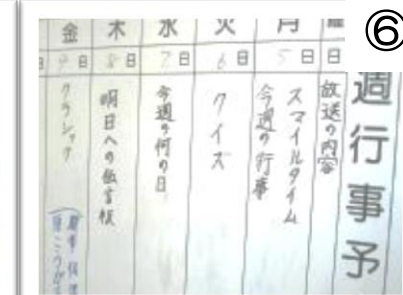 ⑥
週行事予
曜 月 火 水 木 金
日 5日 6日 7日 8日 9日
放送の内容
スマイルタイム
今週の行事
クイズ
今週の何の日
明日への伝言板
クラシック